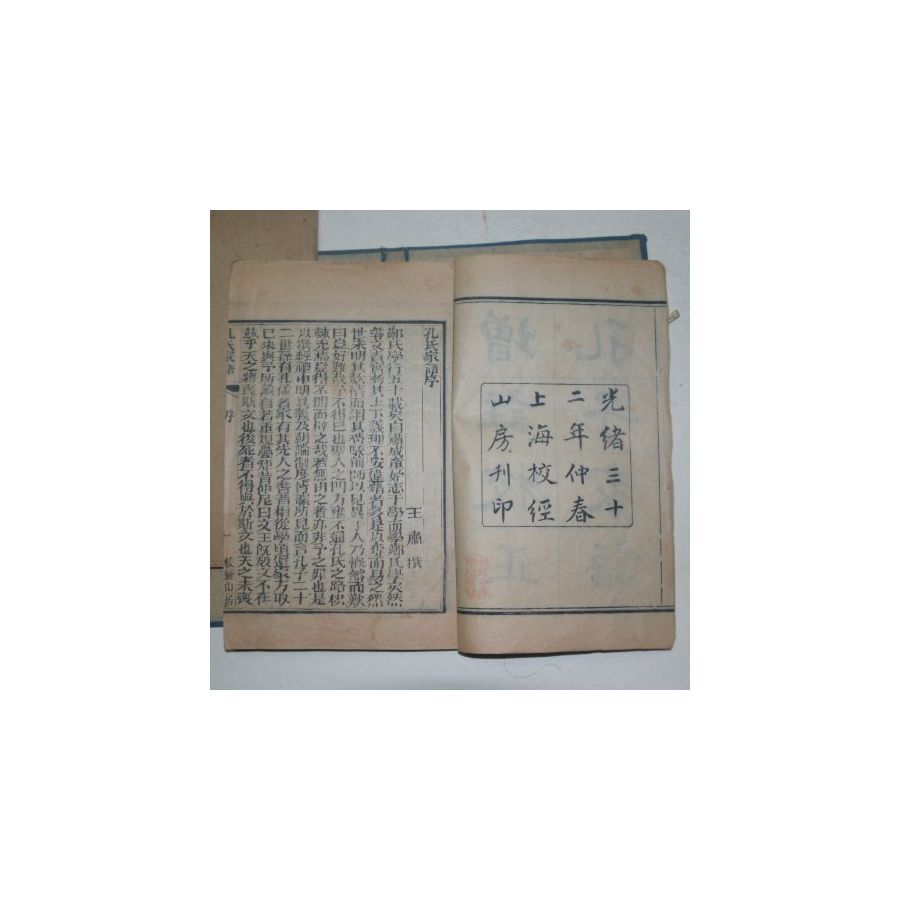 光緒三十
二年仲春
上海校經
山房刊印
孔氏家語序
王肅撰
鄭氏學行五十載矣自肅成童始志于學而學鄭氏學矣然
尋文責實考其上下義理不安違錯者多是以奪而易之然
世未明其款情而謂其苟駮前師以見異于人乃慨然而歎
曰豈好難哉予不得已也聖人之門方壅不通孔氏之路枳
棘充焉豈得不開而辟之哉若無由之者亦非予之罪也是
以撰經禮申明其義及朝論制度皆據所見而言孔子二十
二世孫有孔猛者家有其先人之書昔相從學頃還家方取
已來與予所論有若重規疊矩昔仲尼曰文王既歿文不在
茲乎天之將喪斯文也後死者不得與於斯文也天之未喪
孔氏家語
序
一
校經山房